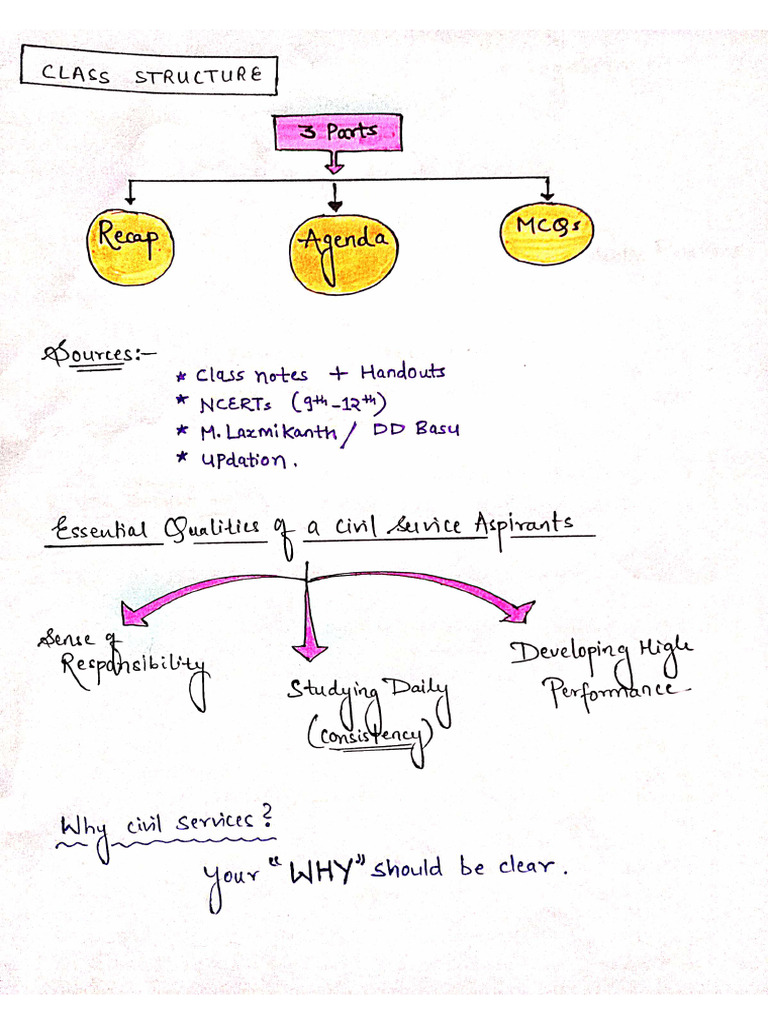 CLASS STRUCTURE
3 Parts
Recap
Agenda
MCQs
Sources:-
* Class notes + Handouts
* NCERTs (9th-12th)
* M. Laxmikanth / DD Basu
* updation.
Essential Qualities of a civil service Aspirants
Sense of
Responsibility
Studying Daily
(consistency)
Developing High
Performance
Why civil services?
Your "WHY" should be clear.